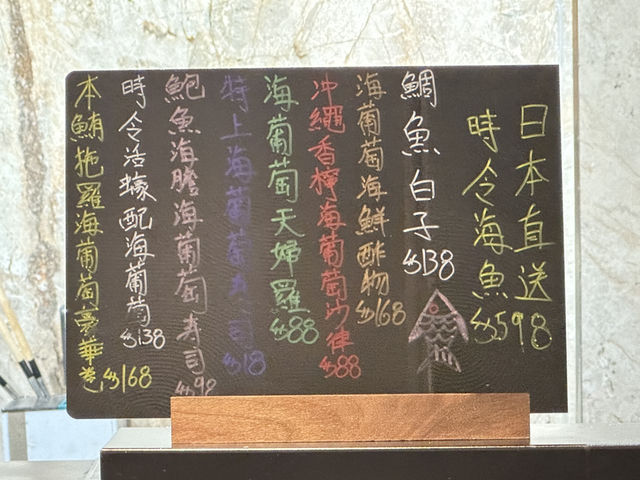 日本直送
時令海魚 $598
鯛魚白子 $138
海葡萄海鮮酢物 $168
沖繩香檸海葡萄沙律 $88
海葡萄天婦羅 $88
特上海葡萄寿司 $18
鮑魚海膽海葡萄寿司 $98
時令活蠔配海葡萄 $138
本鮪拖羅海葡萄豪華卷 $168